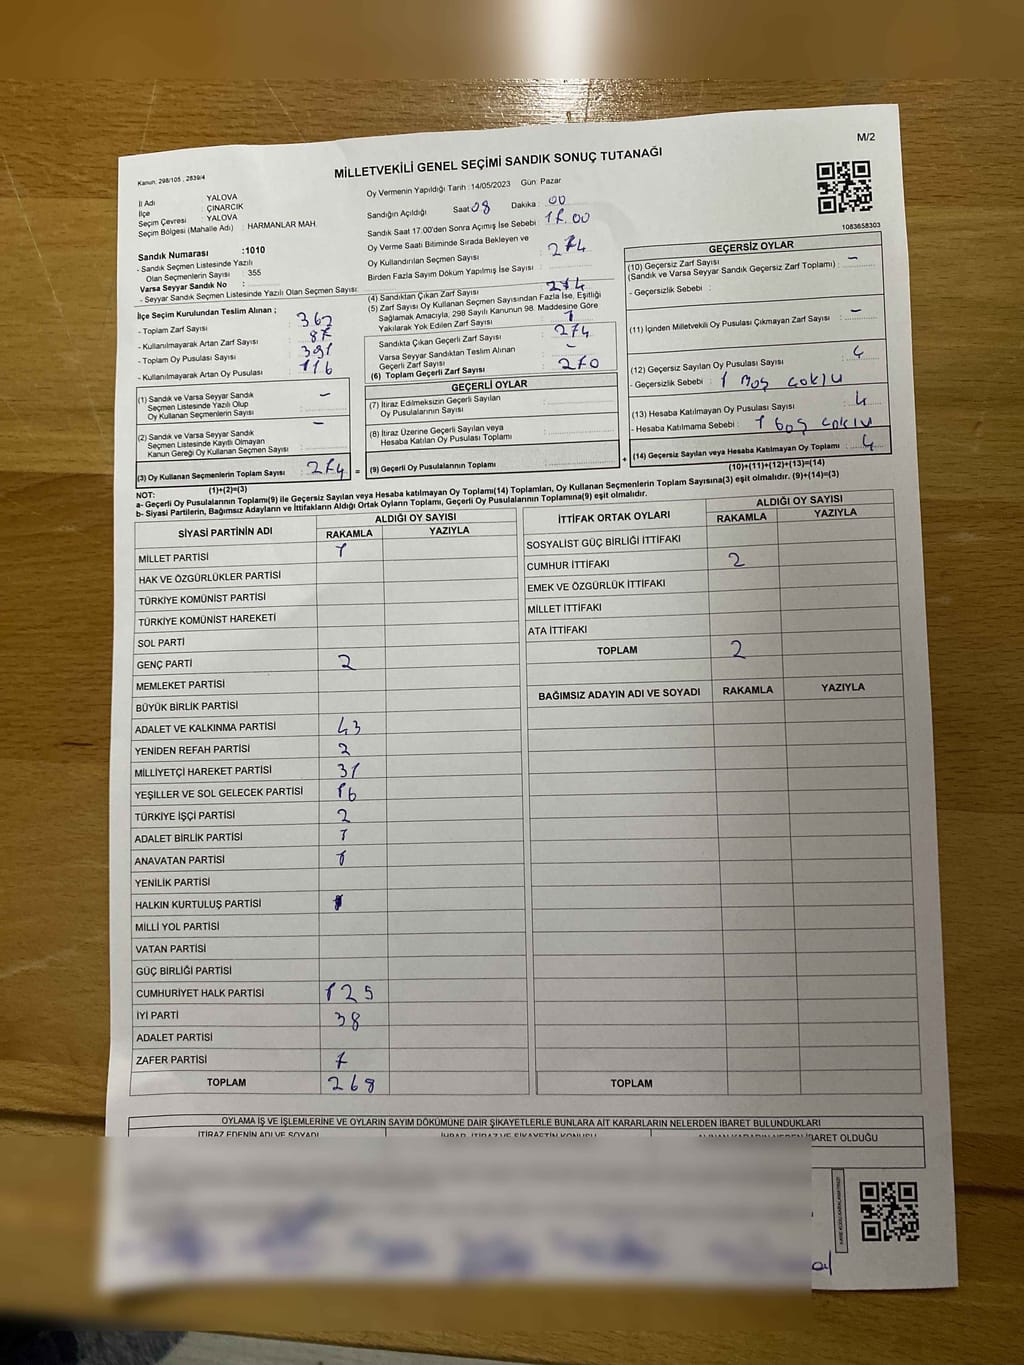 M/2
MİLLETVEKİLİ GENEL SEÇİMİ SANDIK SONUÇ TUTANAĞI
Kanun: 298/105 , 2839/4
İl Adı : YALOVA
İlçe : ÇINARCIK
Seçim Çevresi : YALOVA
Seçim Bölgesi (Mahalle Adı) : HARMANLAR MAH.
Oy Vermenin Yapıldığı Tarih : 14/05/2023 Gün: Pazar
Sandığın Açıldığı Saat: 08 Dakika : 00
Sandık Saat 17.00'den Sonra Açımış İse Sebebi : 17.00
Oy Verme Saati Bitiminde Sırada Bekleyen ve
Oy Kullandırılan Seçmen Sayısı : 274
Birden Fazla Sayım Döküm Yapılmış İse Sayısı :
1083658303
Sandık Numarası :1010
- Sandık Seçmen Listesinde Yazılı
Olan Seçmenlerin Sayısı : 355
Varsa Seyyar Sandık No :
- Seyyar Sandık Seçmen Listesinde Yazılı Olan Seçmen Sayısı:
İlçe Seçim Kurulundan Teslim Alınan ;
- Toplam Zarf Sayısı : 362
- Kullanılmayarak Artan Zarf Sayısı : 87
- Toplam Oy Pusulası Sayısı : 391
- Kullanılmayarak Artan Oy Pusulası : 116
(1) Sandık ve Varsa Seyyar Sandık
Seçmen Listesinde Yazılı Olup
Oy Kullanan Seçmenlerin Sayısı : –
(2) Sandık ve Varsa Seyyar Sandık
Seçmen Listesinde Kayıtlı Olmayan
Kanun Gereği Oy Kullanan Seçmen Sayısı : –
(3) Oy Kullanan Seçmenlerin Toplam Sayısı : 274
(1)+(2)=(3)
(4) Sandıktan Çıkan Zarf Sayısı : 274
(5) Zarf Sayısı Oy Kullanan Seçmen Sayısından Fazla İse, Eşitliği
Sağlamak Amacıyla, 298 Sayılı Kanunun 98. Maddesine Göre
Yakılarak Yok Edilen Zarf Sayısı : 1
Sandıkta Çıkan Geçerli Zarf Sayısı : 274
Varsa Seyyar Sandıktan Teslim Alınan
Geçerli Zarf Sayısı : –
(6) Toplam Geçerli Zarf Sayısı : 270
GEÇERLİ OYLAR
(7) İtiraz Edilmeksizin Geçerli Sayılan
Oy Pusulalarının Sayısı :
(8) İtiraz Üzerine Geçerli Sayılan veya
Hesaba Katılan Oy Pusulası Toplamı :
= (9) Geçerli Oy Pusulalarının Toplamı : +
GEÇERSİZ OYLAR
(10) Geçersiz Zarf Sayısı
(Sandık ve Varsa Seyyar Sandık Geçersiz Zarf Toplamı) : –
- Geçersizlik Sebebi :
(11) İçinden Milletvekili Oy Pusulası Çıkmayan Zarf Sayısı : –
(12) Geçersiz Sayılan Oy Pusulası Sayısı : 4
- Geçersizlik Sebebi : 1 Boş çoklu
(13) Hesaba Katılmayan Oy Pusulası Sayısı : 4
- Hesaba Katılmama Sebebi : 1 boş çoklu
(14) Geçersiz Sayılan veya Hesaba Katılmayan Oy Toplamı : 4
(10)+(11)+(12)+(13)=(14)
NOT:
a- Geçerli Oy Pusulalarının Toplamı(9) ile Geçersiz Sayılan veya Hesaba katılmayan Oy Toplamı(14) Toplamları, Oy Kullanan Seçmenlerin Toplam Sayısına(3) eşit olmalıdır. (9)+(14)=(3)
b- Siyasi Partilerin, Bağımsız Adayların ve İttifakların Aldığı Ortak Oyların Toplamı, Geçerli Oy Pusulalarının Toplamına(9) eşit olmalıdır.
SİYASİ PARTİNİN ADI ALDIĞI OY SAYISI
RAKAMLA YAZIYLA
MİLLET PARTİSİ 1
HAK VE ÖZGÜRLÜKLER PARTİSİ
TÜRKİYE KOMÜNİST PARTİSİ
TÜRKİYE KOMÜNİST HAREKETİ
SOL PARTİ
GENÇ PARTİ 2
MEMLEKET PARTİSİ
BÜYÜK BİRLİK PARTİSİ
ADALET VE KALKINMA PARTİSİ 43
YENİDEN REFAH PARTİSİ 2
MİLLİYETÇİ HAREKET PARTİSİ 31
YEŞİLLER VE SOL GELECEK PARTİSİ 16
TÜRKİYE İŞÇİ PARTİSİ 2
ADALET BİRLİK PARTİSİ 1
ANAVATAN PARTİSİ 1
YENİLİK PARTİSİ
HALKIN KURTULUŞ PARTİSİ
MİLLİ YOL PARTİSİ
VATAN PARTİSİ
GÜÇ BİRLİĞİ PARTİSİ
CUMHURİYET HALK PARTİSİ 125
İYİ PARTİ 38
ADALET PARTİSİ
ZAFER PARTİSİ 7
TOPLAM 268
İTTİFAK ORTAK OYLARI ALDIĞI OY SAYISI
RAKAMLA YAZIYLA
SOSYALİST GÜÇ BİRLİĞİ İTTİFAKI
CUMHUR İTTİFAKI 2
EMEK VE ÖZGÜRLÜK İTTİFAKI
MİLLET İTTİFAKI
ATA İTTİFAKI
TOPLAM 2
BAĞIMSIZ ADAYIN ADI VE SOYADI RAKAMLA YAZIYLA
TOPLAM
OYLAMA İŞ VE İŞLEMLERİNE VE OYLARIN SAYIM DÖKÜMÜNE DAİR ŞİKAYETLERLE BUNLARA AİT KARARLARIN NELERDEN İBARET BULUNDUKLARI
İTİRAZ EDENİN ADI VE SOYADI İHBAR, İTİRAZ VE ŞİKAYETİN KONUSU ALINAN KARARIN NEDEN İBARET OLDUĞU